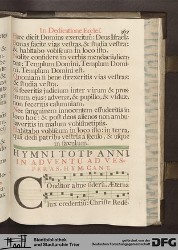 In Dedicatione Eccles.
167
hæc dicit Domins exercituũ: Deus Israël.
bonas facite vias vestras, & studia vestra:
& habitabo vobiscum in loco isto.
Nolite confidere in verbis mendacii dicentes:
Templum Domini, Templum Domini,
Templum Domini est.
Quoniam si bene direxeritis vias vestras,
& studia vestra.
Si feceritis judicium inter virum & proximum
ejus: advenæ, & pupillo, & viduæ,
non feceritis calumniam.
Nec sanguinem innocentem effuderitis in
loco hoc: & post deos alienos non ambulaveritis
in malum vobismetipsis.
Habitabo vobiscum in loco isto: in terra,
quam dedi patribus vestris a sæculo, & usque
in sæculum.
HYMNI TOTI ANNI
IN ADVENTU AD VESPERAS
HYMNUS.
Conditor alme siderum, Æterna
lux credentium: Christe Redé-
gefördert von der
Deutschen Forschungsgemeinschaft
DFG